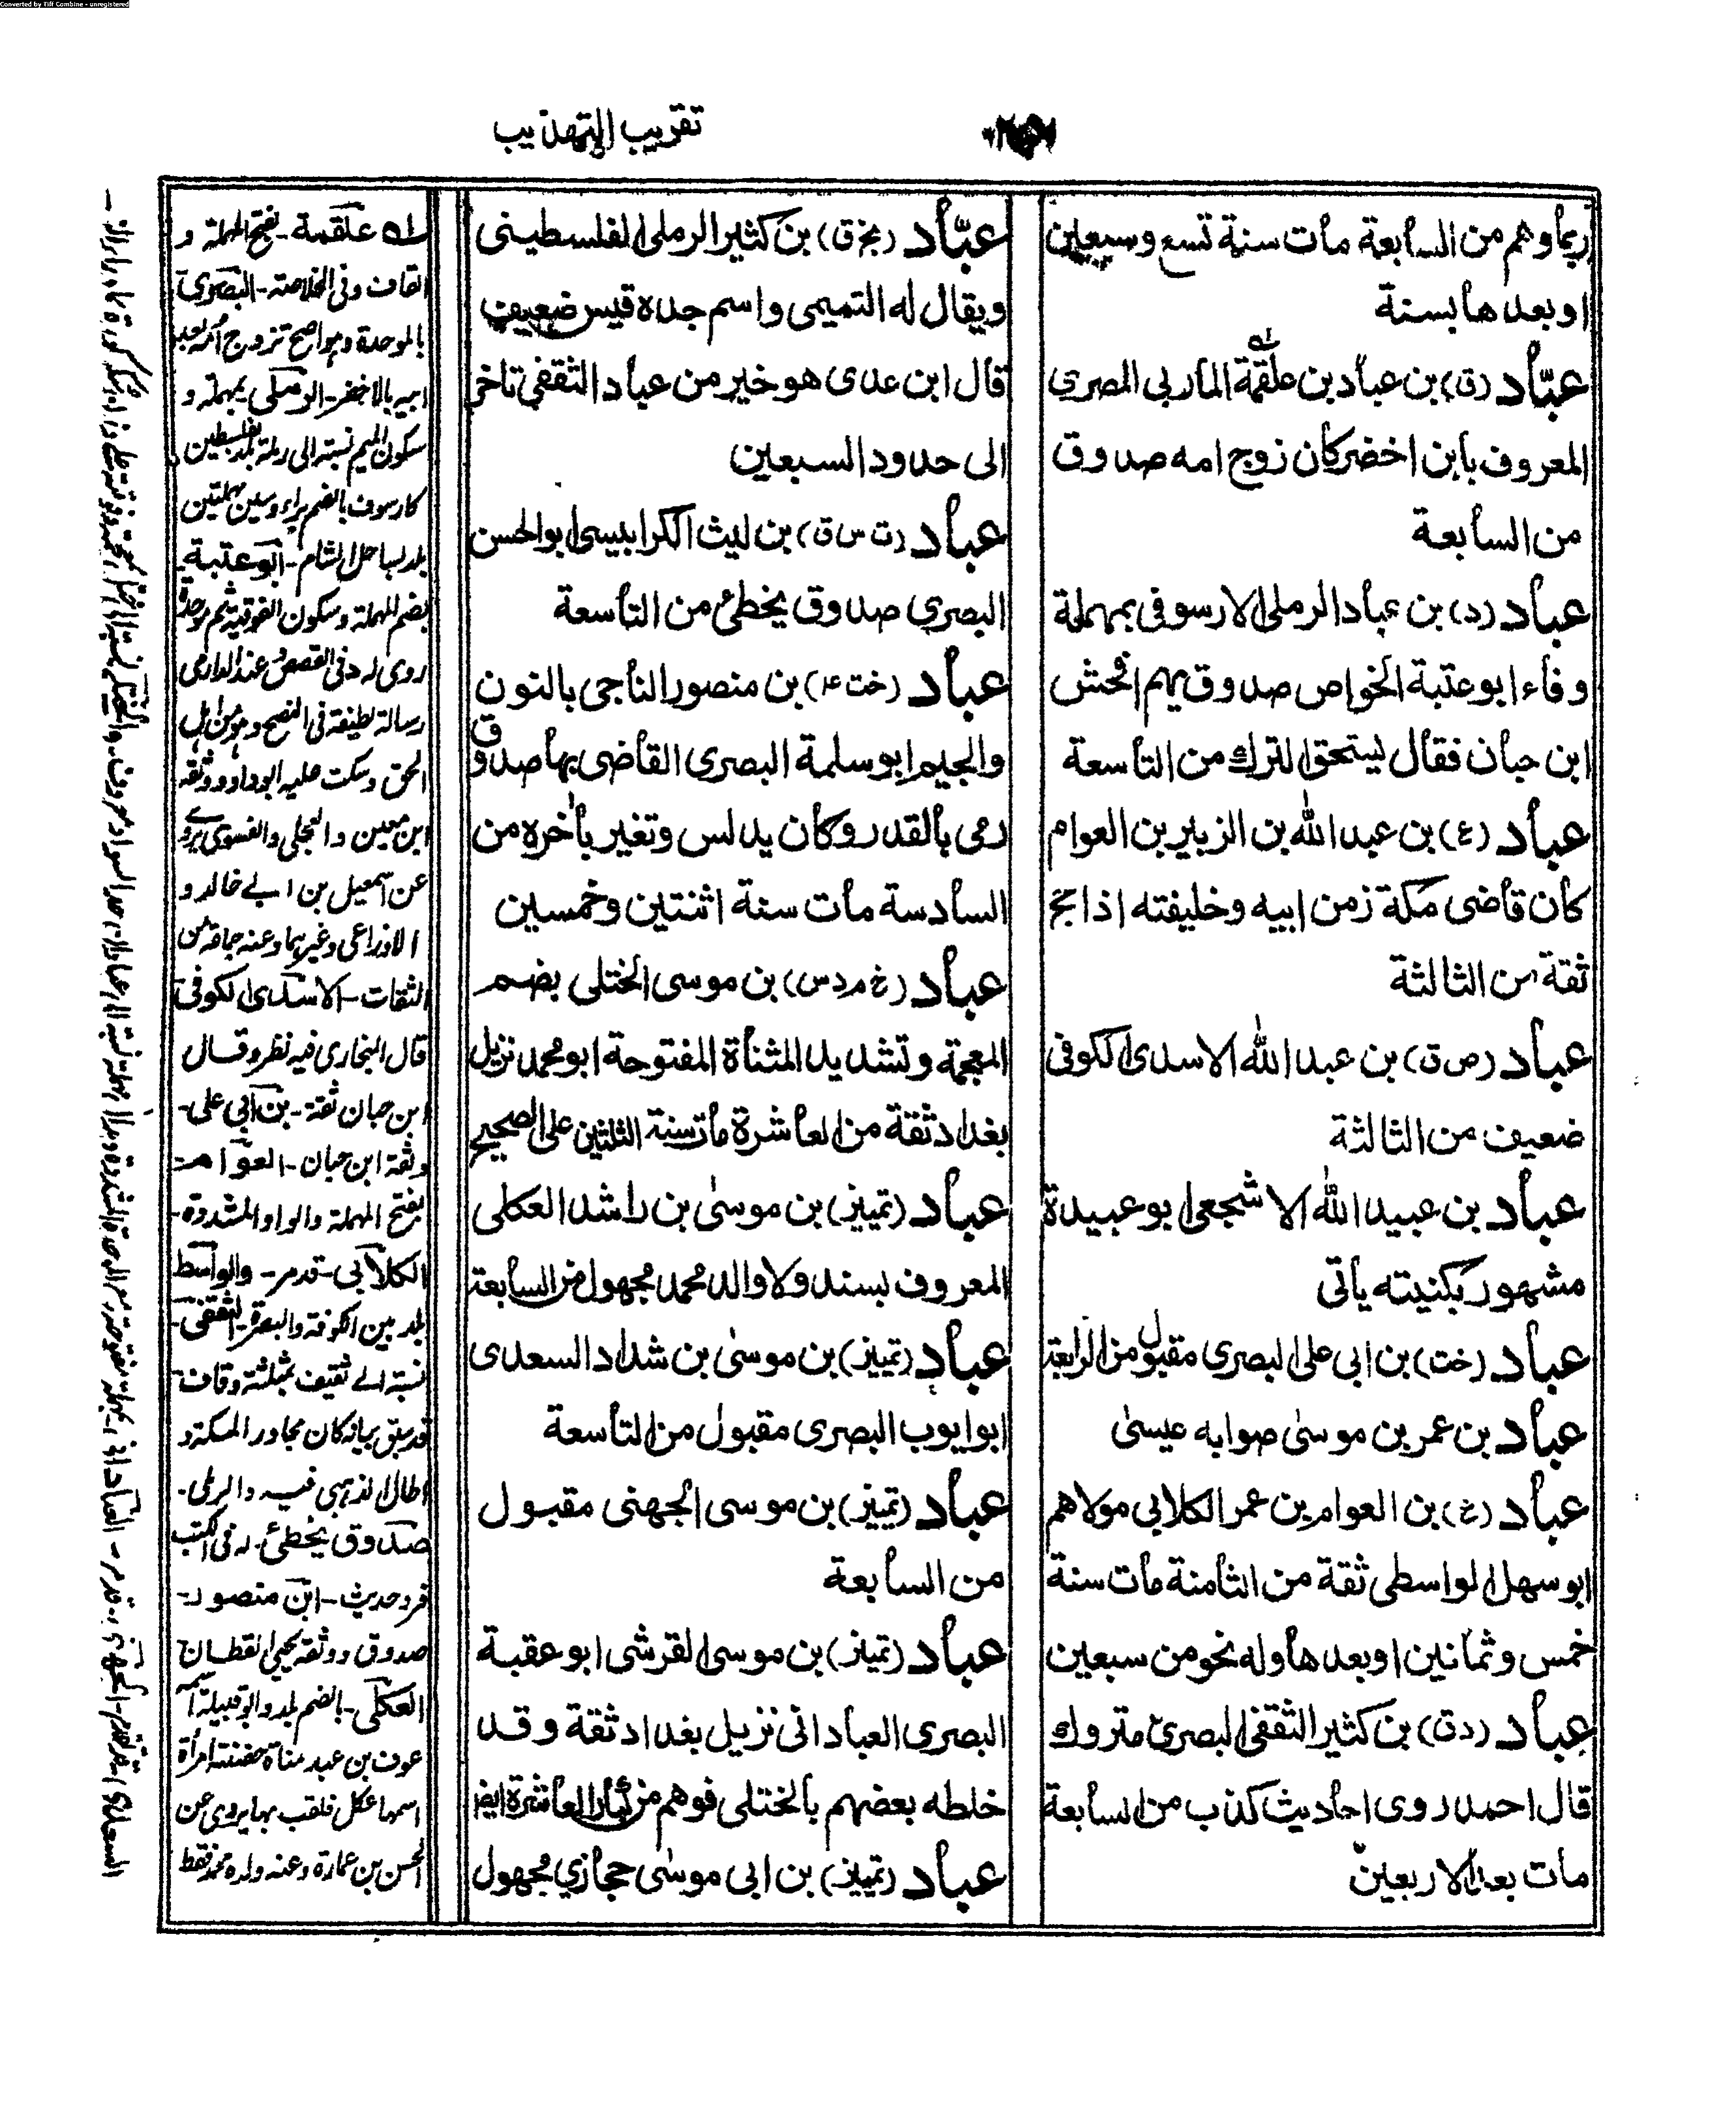 Converted by Tiff Combine - unregistered
تقريب التهذيب
ربما وهم من السابعة مات سنة تسع وسبعين
او بعدها بسنة
عبّاد (ق) بن عباد بن علقمة المازني المصري
المعروف بابن اخضر كان زوج امه صدوق
من السابعة
عباد (د) بن عباد الرملي الارسوفى بمهملة
وفاء ابو عتبة الخواص صدوق يهم افحش
ابن حبان فقال يستحق الترك من التاسعة
عباد (ع) بن عبد الله بن الزبير بن العوام
كان قاضى مكة زمن ابيه وخليفته اذا حج
ثقة من الثالثة
عباد (ص ق) بن عبد الله الاسدى الكوفى
ضعيف من الثالثة
عباد بن عبيد الله الاشجعى ابو عبيدة
مشهور بكنيته يأتى
عباد (خت) بن ابى على البصرى مقبول من الرابعة
عباد بن عمر بن موسىٰ صوابه عيسىٰ
عباد (ع) بن العوام بن عمر الكلابي مولاهم
ابو سهل الواسطى ثقة من الثامنة مات سنة
خمس وثمانين او بعدها وله نحو من سبعين
عباد (د ق) بن كثير الثقفى البصرى متروك
قال احمد روى احاديث كذب من السابعة
مات بعد الاربعين
عبّاد (بخ ق) بن كثير الرملى الفلسطينى
ويقال له التميمى واسم جده قيس ضعيف
قال ابن عدى هو خير من عباد الثقفى تاخر
الى حدود السبعين
عباد (ت س ق) بن ليث الكرابيسى ابو الحسن
البصري صدوق يخطئ من التاسعة
عباد (خت ٤) بن منصور الناجى بالنون
والجيم ابو سلمة البصرى القاضى بها صدوق
رمى بالقدر وكان يدلس وتغير بأخره من
السادسة مات سنة اثنتين وخمسين
عباد (خ م د س) بن موسى الختلى بضم
المعجمة وتشديد المثناة المفتوحة ابو محمد نزيل
بغداد ثقة من العاشرة مات سنة الثلثين على الصحيح
عباد (تمييز) بن موسىٰ بن راشد العكلى
المعروف بسندولا والد محمد مجهول من السابعة
عباد (تمييز) بن موسىٰ بن شداد السعدى
ابو ايوب البصرى مقبول من التاسعة
عباد (تمييز) بن موسى الجهنى مقبول
من السابعة
عباد (تمييز) بن موسى القرشى ابو عقبة
البصرى العبادانى نزيل بغداد ثقة وقد
خلطه بعضهم بالختلى فوهم من كبار العاشرة ايضا
عباد (تمييز) بن ابى موسىٰ حجازي مجهول
له علقمة - بفتح المهملة و
القاف وفى الخلاصة - البصرى
بالموحدة وهو اصح تزوج امه بعد
ابيه بالاخضر - الرملى بمهملة و
سكون الميم نسبة الى رملة بلد بفلسطين
كارسوف بالضم براء وسين مهملتين
بلد بساحل الشام - ابو عتبة
بضم المهملة وسكون الفوقية ثم موحدة
روى له د فى القصص وعند الدارمى
رسالة لطيفة فى النصح وهو من اهل
الحق وسكت عليه ابو داود ووثقه
ابن معين والعجلى والفسوى يروى
عن اسمعيل بن ابي خالد و
الاوزاعى وغيرهما وعنه جماعة من
الثقات - الاسدى الكوفى
قال البخارى فيه نظر وقال
ابن حبان ثقة - بن ابى على -
وثقه ابن حبان - العوام -
بفتح المهملة والواو المشددة -
الكلابى - قد مر - والواسط
بلد بين الكوفة والبصرة - الثقفى -
نسبة الے ثقيف بمثلثة وقاف
قد سبق بيانه كان مجاور المكة و
اطال الذهبى فيه والرملى -
صدوق يخطئ - له فى الكتب
فرد حديث - ابن منصور -
صدوق ووثقه يحيى القطان
العكلى - بالضم بلد وابو قبيلة اسمه
عوف بن عبد مناة حضنته امرأة
اسمها عكل فلقب بها يروى عن
الحسن بن عمارة وعنه ولده محمد فقط